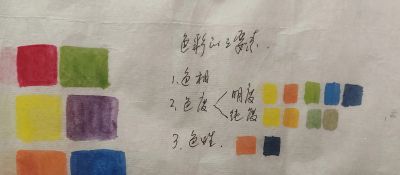 色彩的三要素.
1.色相
2.色度 明度
纯度
3.色性.